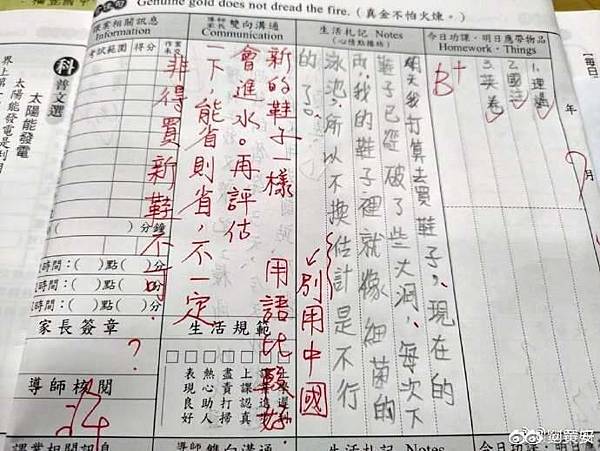 Genuine gold does not dread the fire.(真金不怕火煉。)
課業相關訊息
Information
考試範圍 得分
雙向溝通
Communication
生活札記 Notes
(心情點播站)
今日功課‧明日應帶物品
Homework‧Things
3.英卷
B+
明天我打算去買鞋子,現在的
鞋子已經破了些大洞,每次下
雨,我的鞋子裡就像細菌的
泳池,所以不換估計是不行
的了。
別用中國
用語比較好.
新的鞋子一樣
會進水。再評估
一下,能省則省,不一定
非得買新鞋不可.
( )分鐘
時間:( )點( )分
時間:( )點( )分
時間:( )點( )分
家長簽章
?
導師核閱
生活規範
上課認真
盡責打掃
熱心助人
表現良好
科普文選
太陽能發電
太陽能發電是利用
界上第一
年
月
課業相關訊息
雙向溝通
生活札記 Notes
今日功課‧明日應